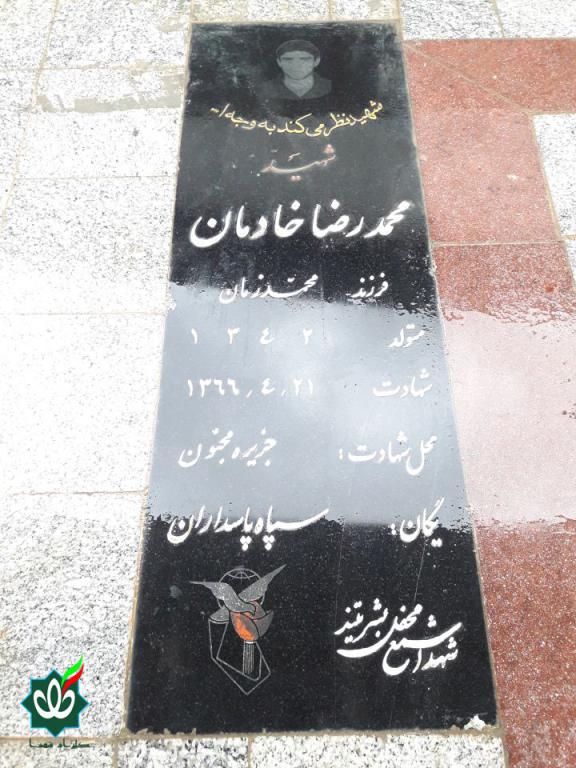 شهید نظر می کند به وجه ا...
شهید
محمدرضا خادمان
فرزند محمدزمان
متولد ۱۳۴۲
شهادت ۱۳۶۶،۴،۲۱
محل شهادت: جزیره مجنون
یگان: سپاه پاسداران
شهدا شمع محفل بشریتند